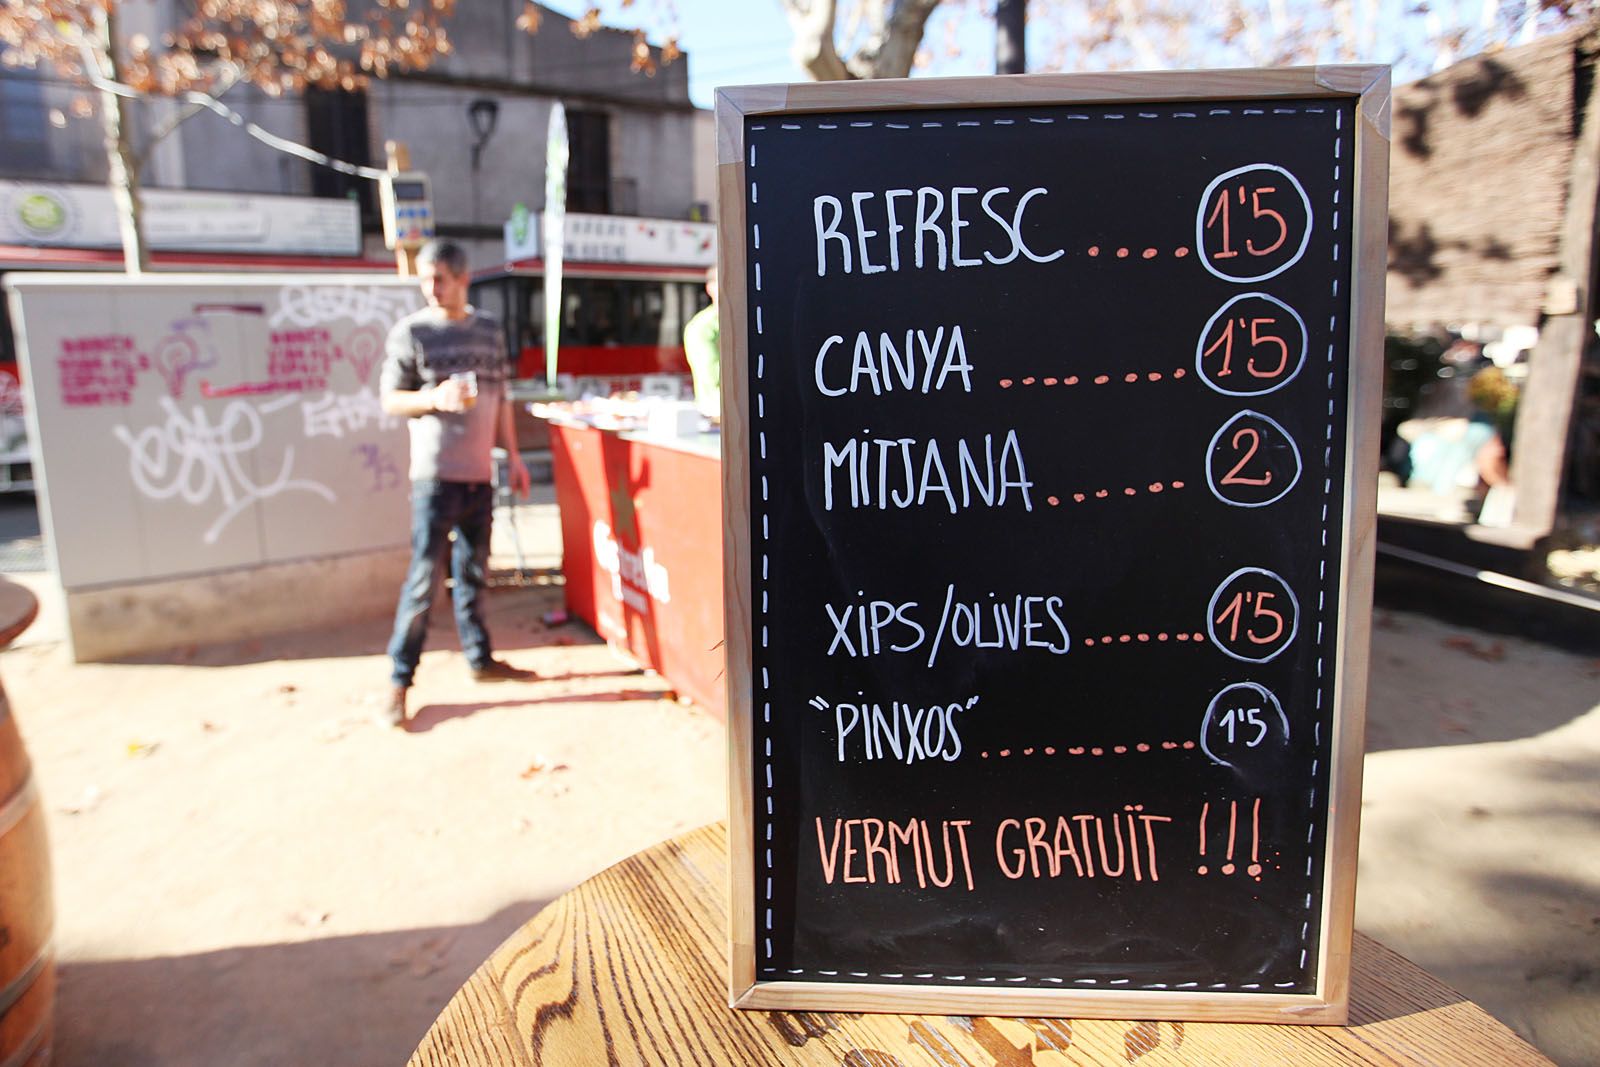 REFRESC ..... 1'5
CANYA ........... 1'5
MITJANA ....... 2
XIPS/OLIVES ........ 1'5
"PINXOS" .......... 1'5
VERMUT GRATUÏT !!!